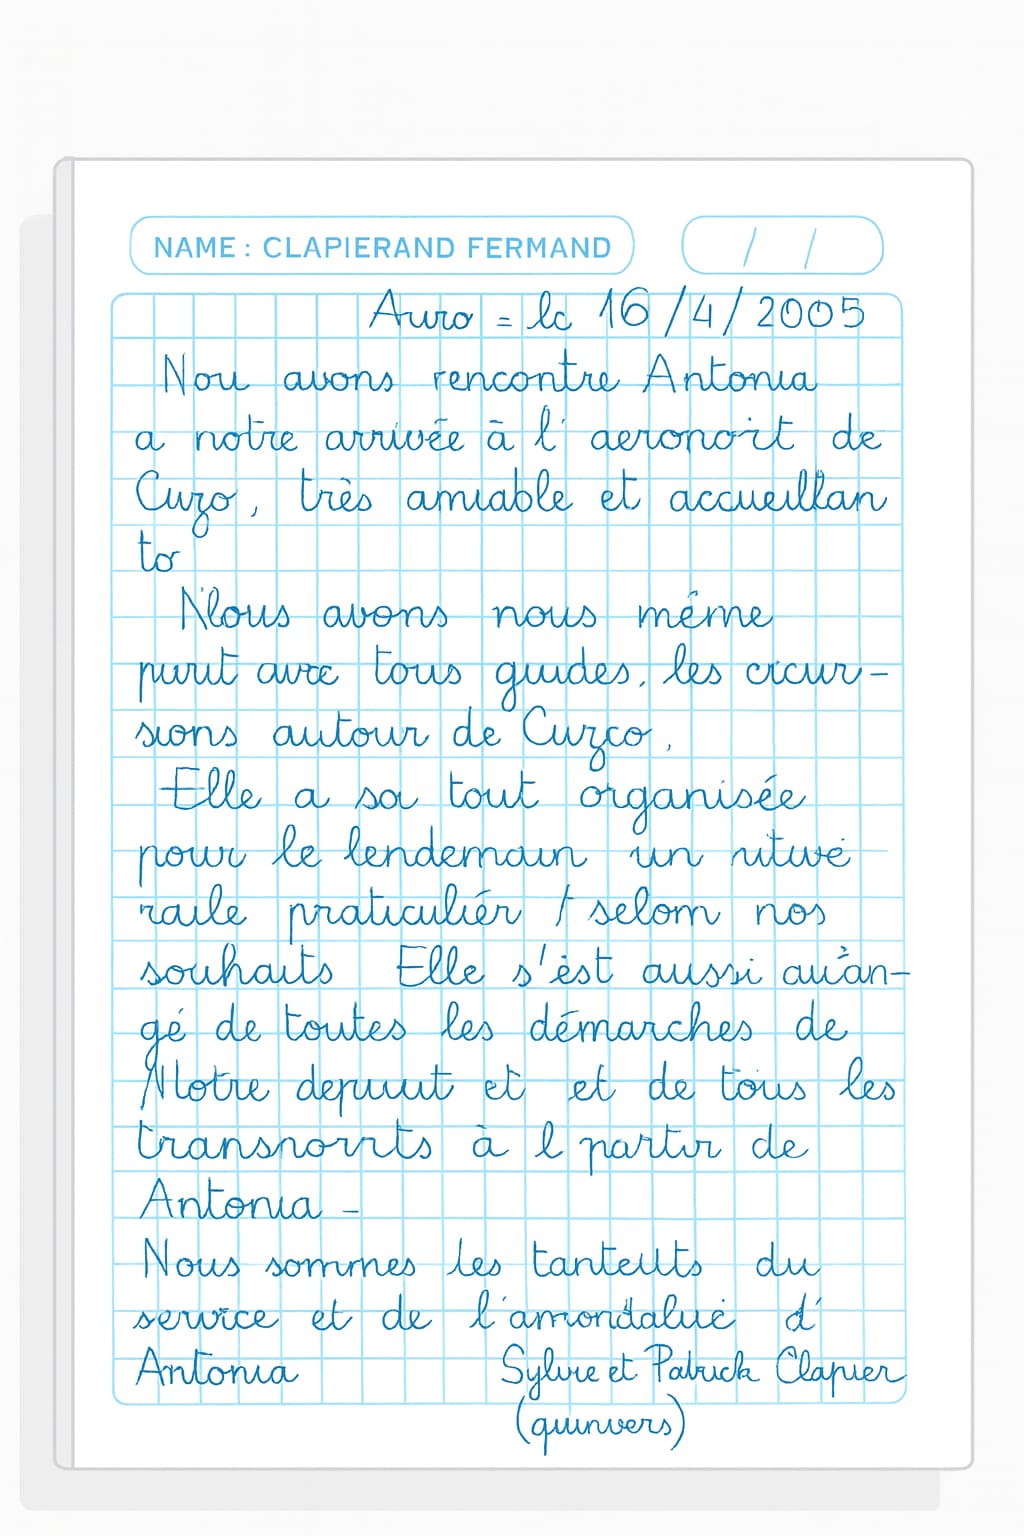 NAME : CLAPIERAND FERMAND / /
Auro = lc 16/4/2005
Nou avons rencontre Antonia
a notre arrivée à l'
de
Cuzo, très amiable et accueillan
to
Nous avons nous méme
tous guides, les
sions autour de Cuzco,
Elle a sa tout organisée
pour le lendemain un
praticuliér / selom nos
souhaits Elle s'èst aussi
gé de toutes les démarches de
Notre et et de tous les
à l partir de
Antonia -
Nous sommes les du
service et de d'
Antonia Sylvie et Patrick Clapier
(quinvers)